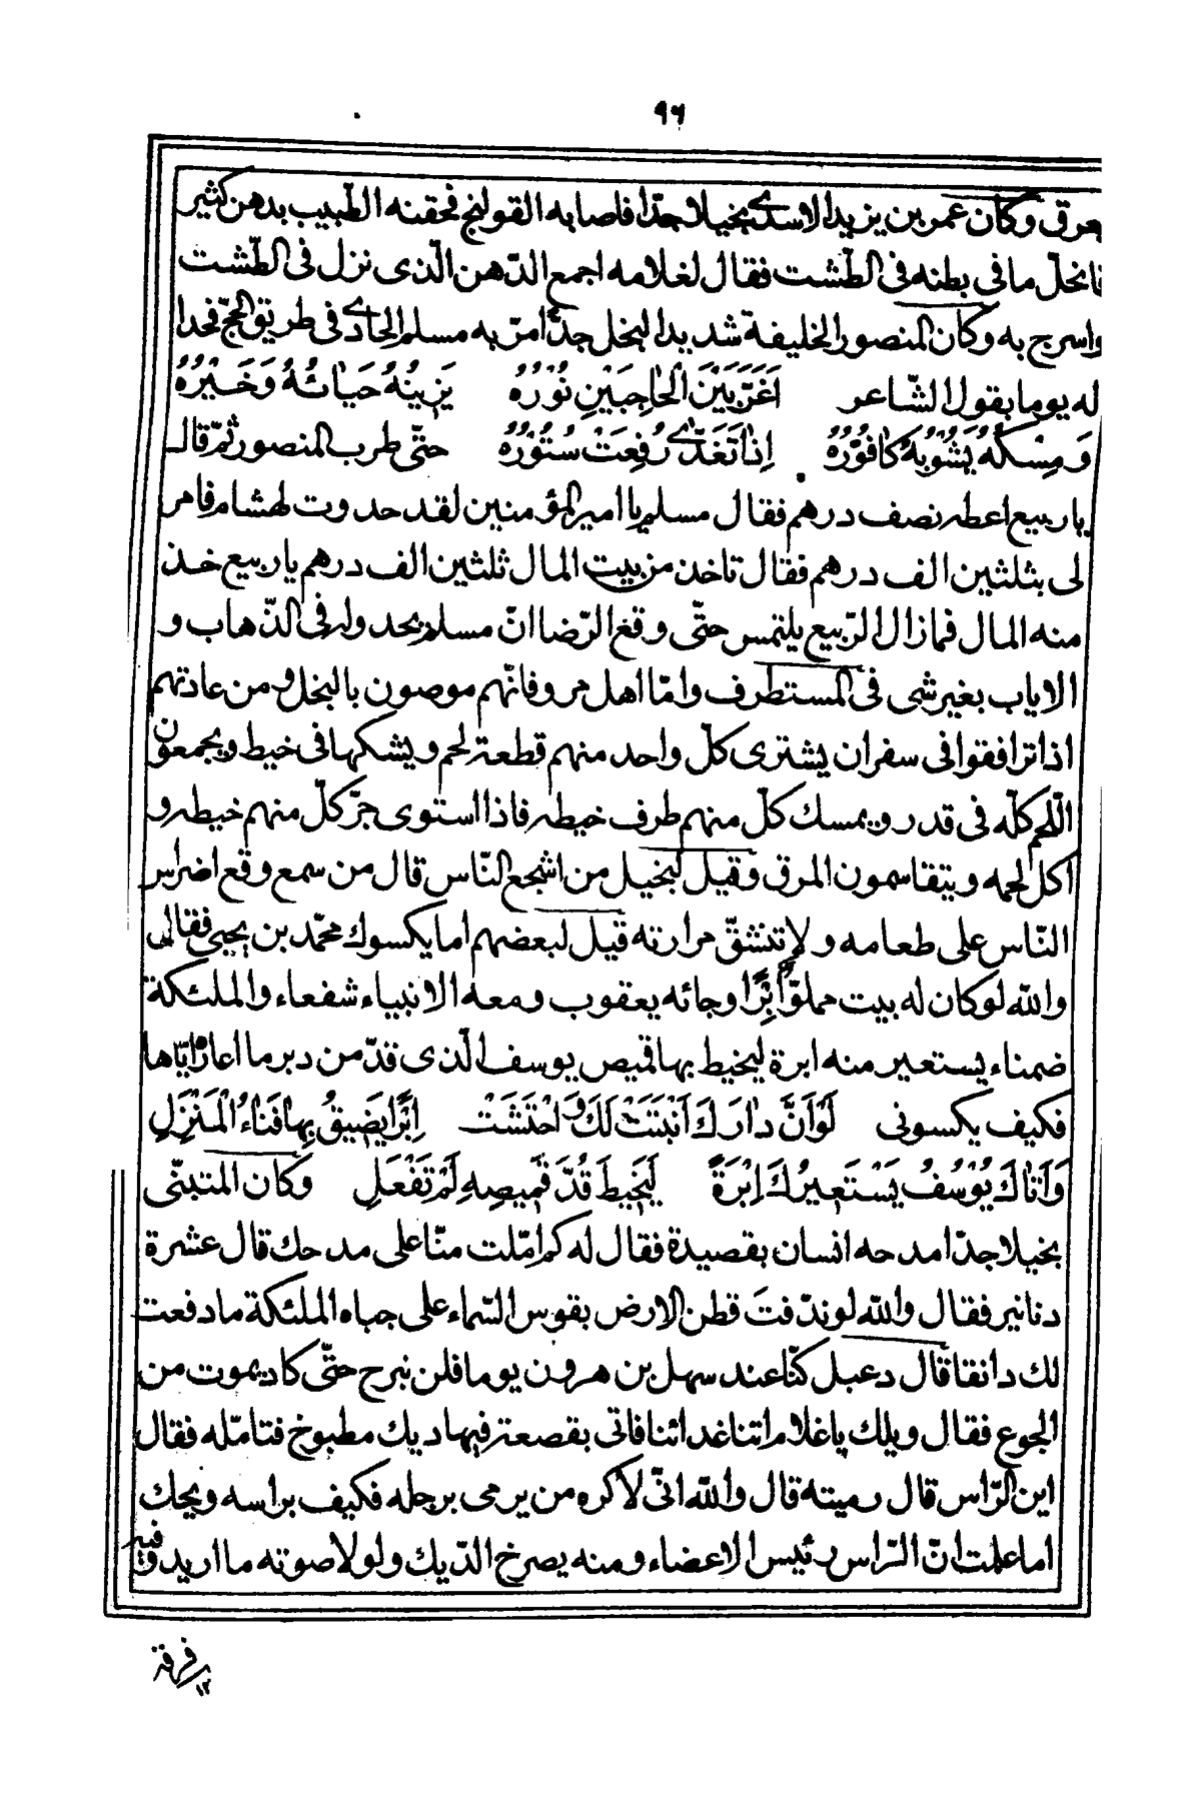 ٩٦
بعرق وكان عمر بن يزيد الاسدى بخيلا جدّا فاصابه القولنج فحقنه الطّبيب بدهن كثير
فانحلّ ما فى بطنه فى الطّشت فقال لغلامه اجمع الدّهن الّذى نزل فى الطّشت
واسرج به وكان المنصور الخليفة شديد البخل جدّا مرّ به مسلم الحادى فى طريق الحجّ فحدا
له يوما بقول الشّاعر اَغَرَّ بَيْنَ الْحَاجِبَيْنِ نُوْرُهُ يَزِينُهُ حَيَائُهُ وَخَيْرُهُ
وَمِسْكُهُ يَشُوْبُهُ كَافُوْرُهُ اِذَا تَغَدّٰى رُفِعَتْ سُتُوْرُهُ حتّى طرب المنصور ثمّ قال
يا ربيع اعطه نصف درهم فقال مسلم يا امير المؤمنين لقد حدوت لهشام فامر
لى بثلثين الف درهم فقال تاخذ من بيت المال ثلثين الف درهم يا ربيع خذ
منه المال فما زال الرّبيع يلتمس حتّى وقع الرّضا انّ مسلم يحدو له فى الذّهاب و
الاياب بغير شى فى المستطرف وامّا اهل مرو فانّهم موصون بالبخل ومن عادتهم
اذا ترافقوا فى سفر ان يشترى كلّ واحد منهم قطعة لحم ويشكها فى خيط ويجمعون
اللّحم كلّه فى قدر ويمسك كلّ منهم طرف خيطه فاذا استوى جرّ كلّ منهم خيطه و
اكل لحمه ويتقاسمون المرق وقيل لبخيل من اشجع النّاس قال من سمع وقع اضراس
النّاس على طعامه ولا تنشقّ مرارته قيل لبعضهم اما يكسوك محمّد بن يحيى فقال لى
والله لو كان له بيت مملوّ اِبَرًا وجائه يعقوب ومعه الانبياء شفعاء والملئكة
ضمناء يستعير منه ابرة ليخيط بها قميص يوسف الّذى قدّ من دبر ما اعاره ايّاها
فكيف يكسونى لَوْ اَنَّ دَارَكَ اَنْبَتَتْ لَكَ وَاحْتَشَتْ اِبَرًا يَضِيقُ بِهَا فَنَاءُ الْمَنْزِلِ
وَاَتَاكَ يُوْسُفُ يَسْتَعِيرُكَ اِبْرَةً لِيَخِيطَ قُدَّ قَمِيصِهِ لَمْ تَفْعَلِ وكان المتنبّى
بخيلا جدّا مدحه انسان بقصيدة فقال له كم امّلت منّا على مدحك قال عشرة
دنانير فقال والله لو ندفتَ قطن الارض بقوس السّماء على جباه الملئكة ما دفعت
لك دانقا قال دعبل كنّا عند سهل بن هرون يوما فلن نبرح حتّى كاد يموت من
الجوع فقال ويلك يا غلام اتنا غدائنا فاتى بقصعة فيها ديك مطبوخ فتامّله فقال
اين الرّاس قال رميته قال والله انّى لاكره من يرمى برجله فكيف براسه ويحك
اما علمت انّ الرّاس رئيس الاعضاء ومنه يصرخ الدّيك ولولا صوته ما اريد وفيه
فرقة